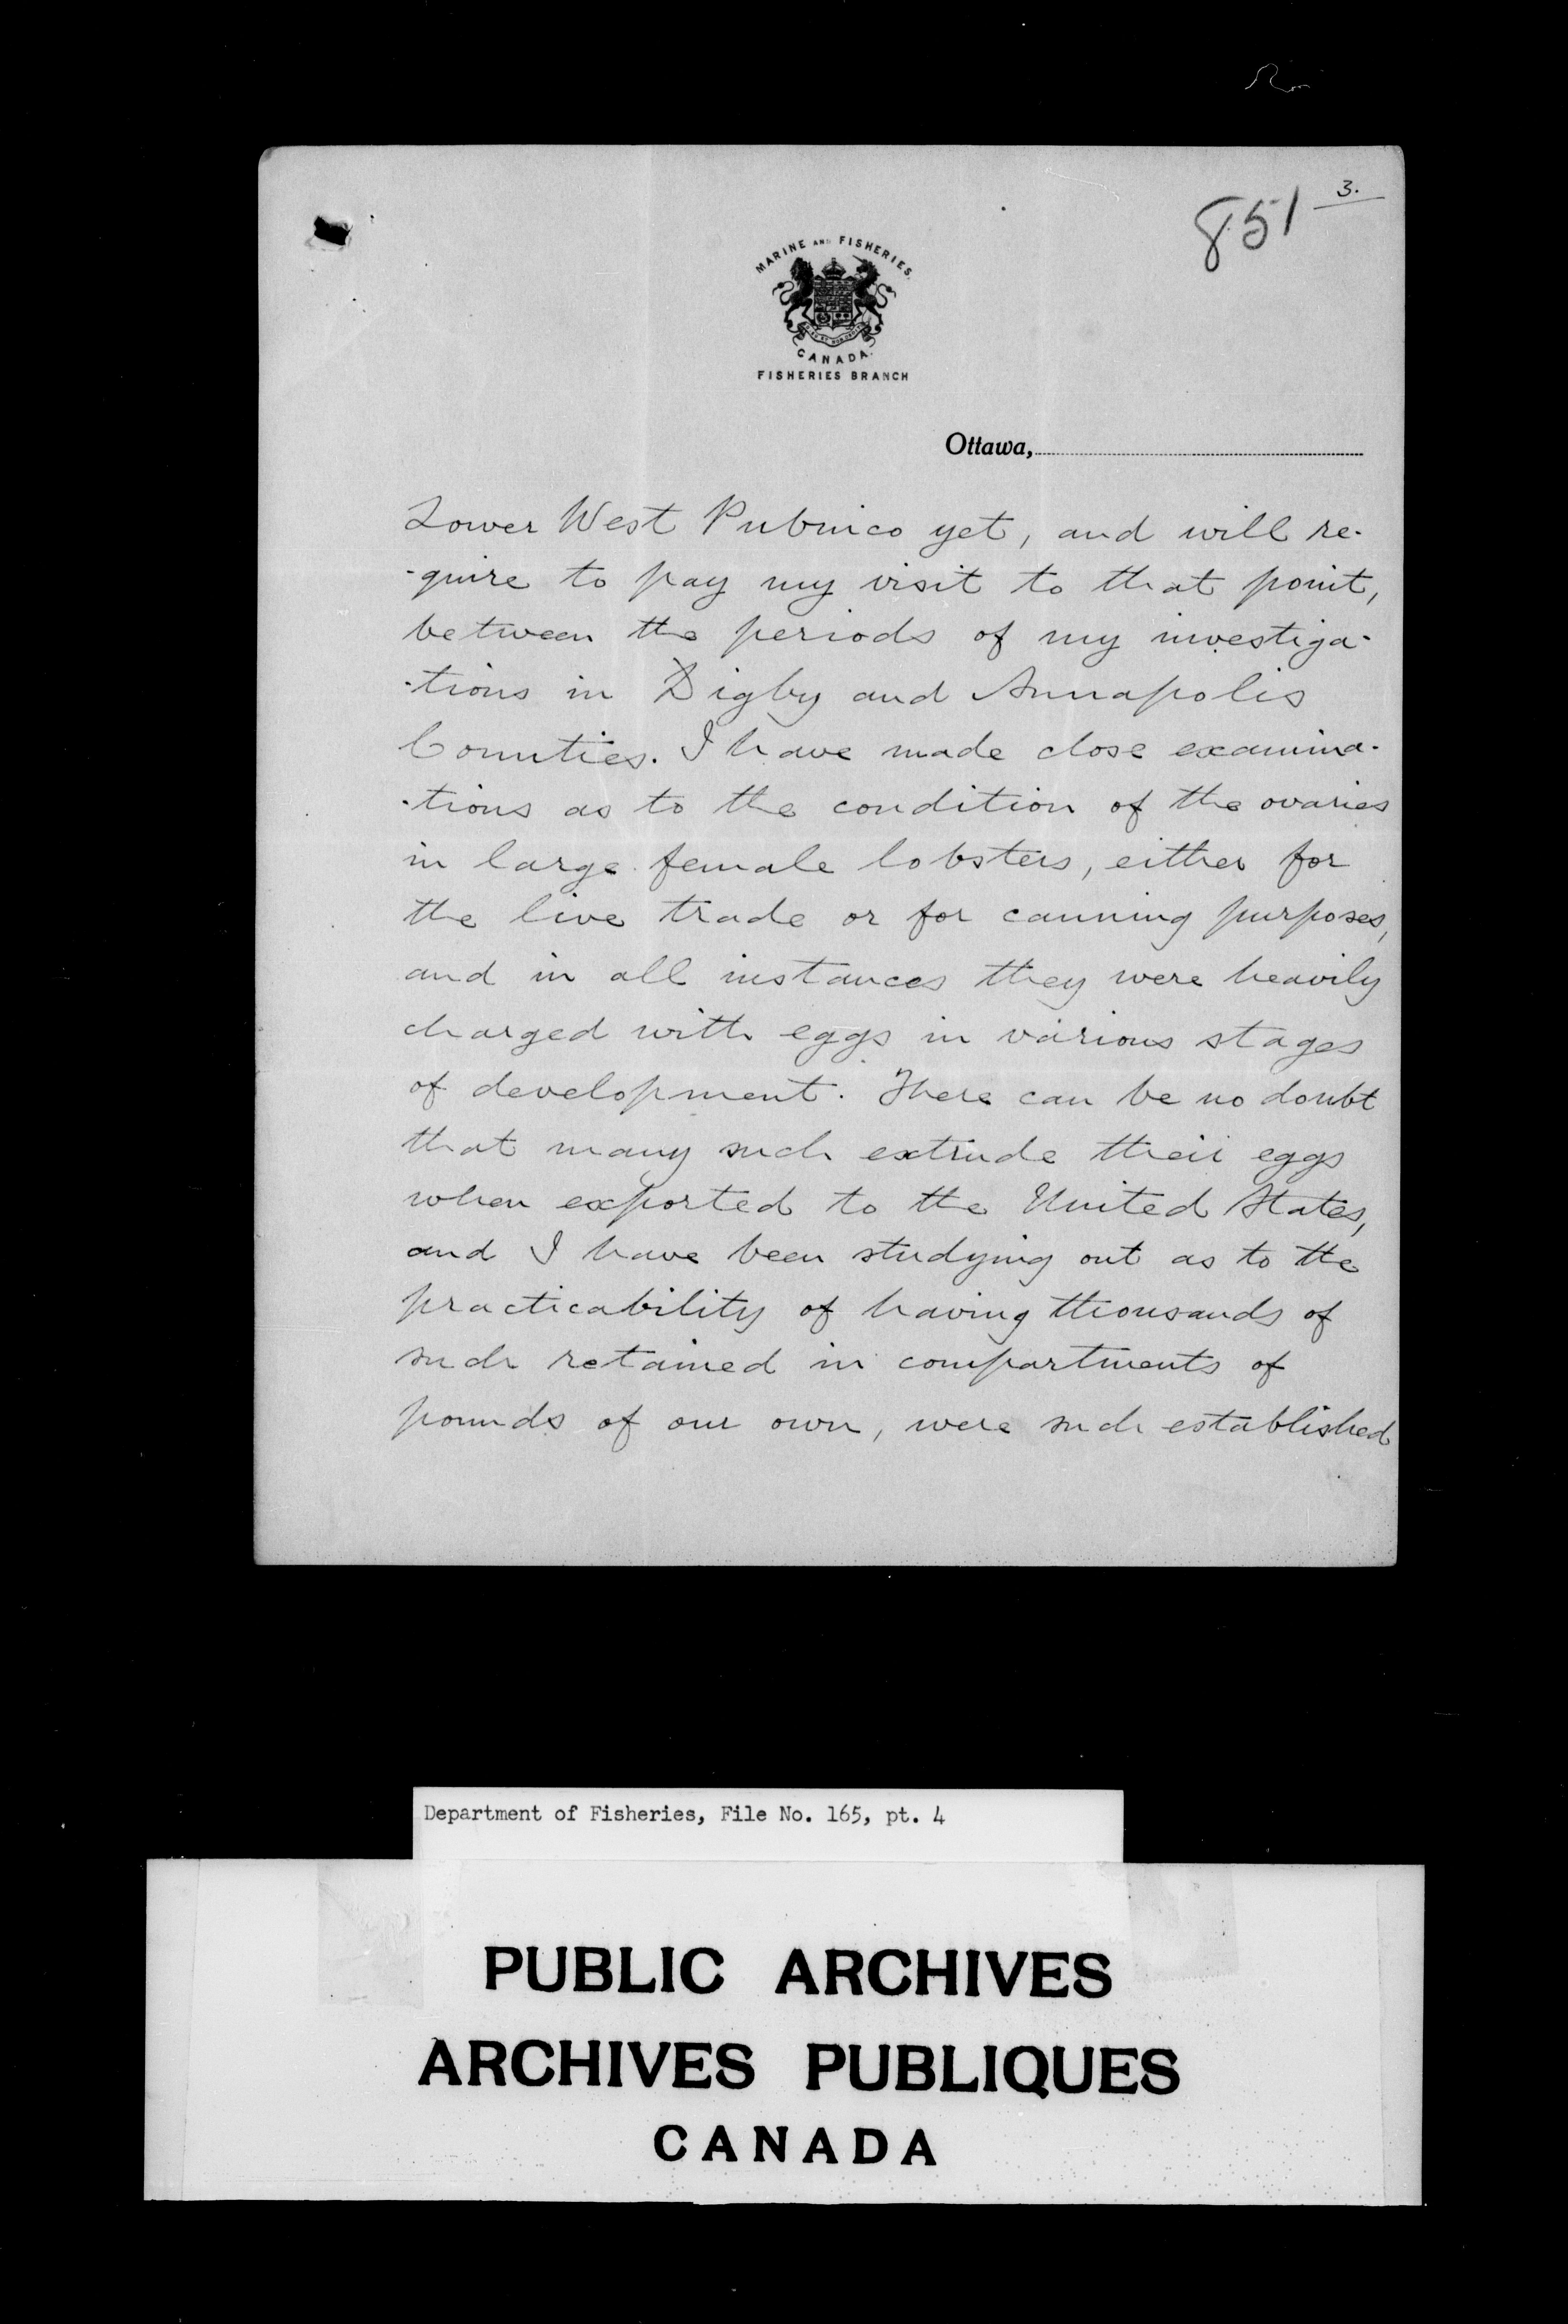 3.
851
MARINE AND FISHERIES.
CANADA.
FISHERIES BRANCH
Ottawa,
Lower West Pubnico yet, and will re-
-quire to pay my visit to that point,
between the periods of my investiga-
-tions in Digby and Annapolis
Counties. I have made close examina-
-tions as to the condition of the ovaries
in large female lobsters, either for
the live trade or for canning purposes,
and in all instances they were heavily
charged with eggs in various stages
of development. There can be no doubt
that many such extrude their eggs
when exported to the United States,
and I have been studying out as to the
practicability of having thousands of
such retained in compartments of
pounds of our own, were such established
Department of Fisheries, File No. 165, pt. 4
PUBLIC ARCHIVES
ARCHIVES PUBLIQUES
CANADA